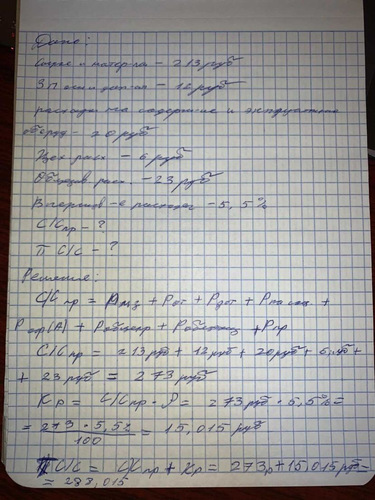 Дано:
Сырье и матер-лы - 213 руб
ЗП осн и доп-ая - 12 руб
расходы на содержание и эксплуатацию
оборуд - 20 руб
Цех расх - 6 руб
Общезав расх. - 23 руб
Внепроизв-е расходы - 5,5%
С/Спр - ?
П С/С - ?
Решение:
С/Спр = + Рот + Рдот + +
+ + + Рпр
С/Спр = 213 руб + 12 руб + 20 руб + 6 руб +
+ 23 руб = 273 руб
Кр = С/Спр · Р = 273 руб · 5,5% =
= 273 · 5,5% / 100 = 15,015 руб
П С/С = С/Спр + Кр = 273р + 15,015 руб =
= 288,015